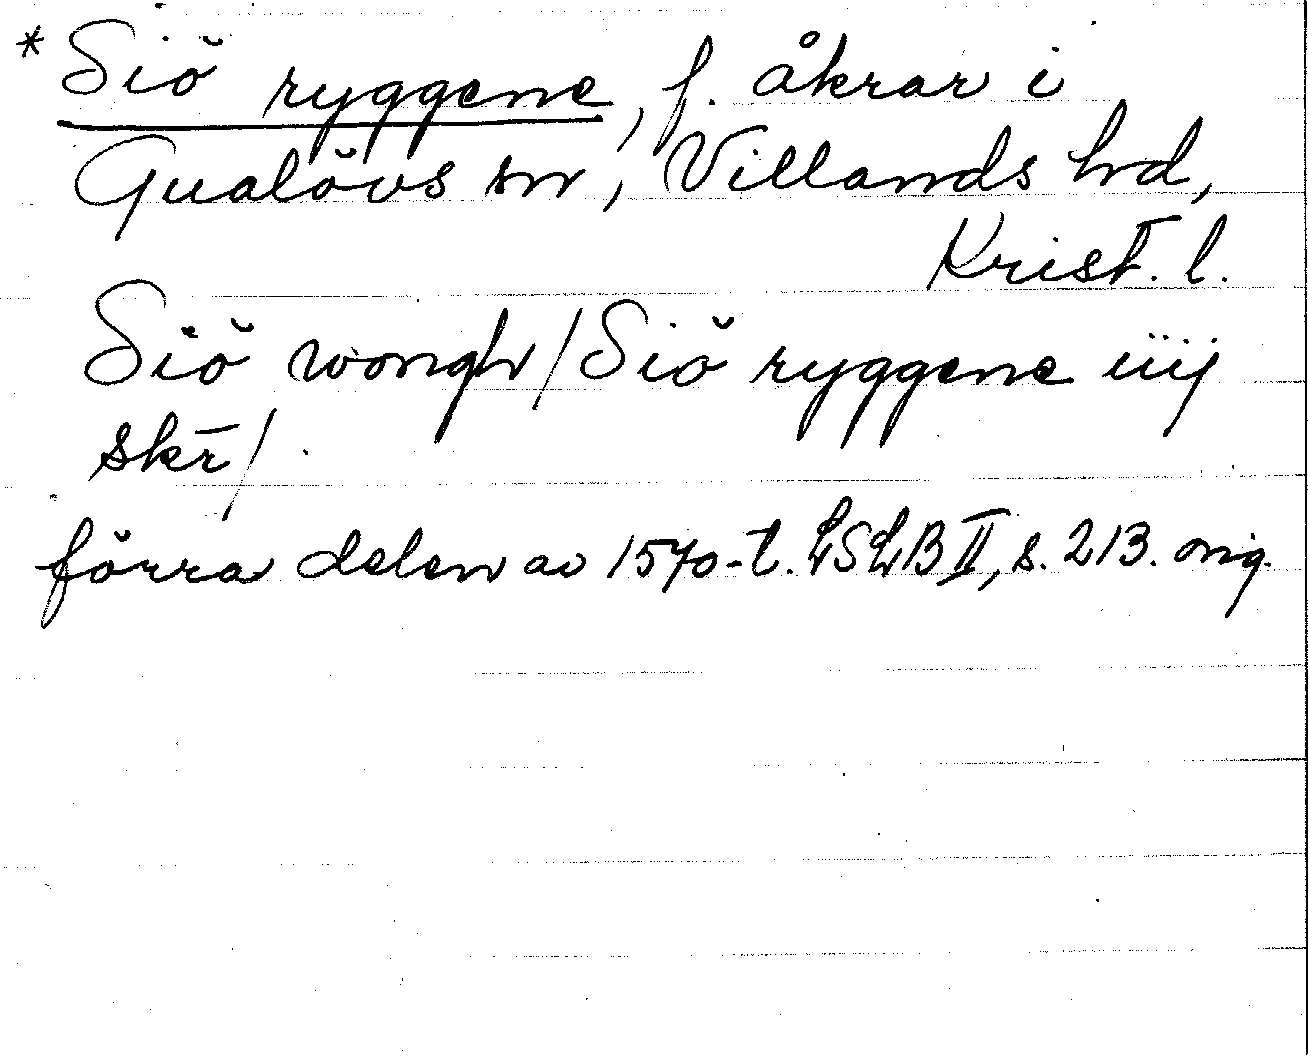 * Siö ryggene, f. åkrar i
Gualövs sn, Villands hd,
Krist. l.
Siö wongh/Siö ryggene iiij
skr̄/.
förra delen av 1570-t. LSLB II, s. 213. orig.